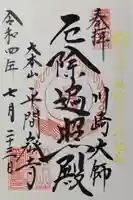 奉拝
川崎大師
厄除遍照殿
大本山
平間教寺
令和四年
七月二十二日